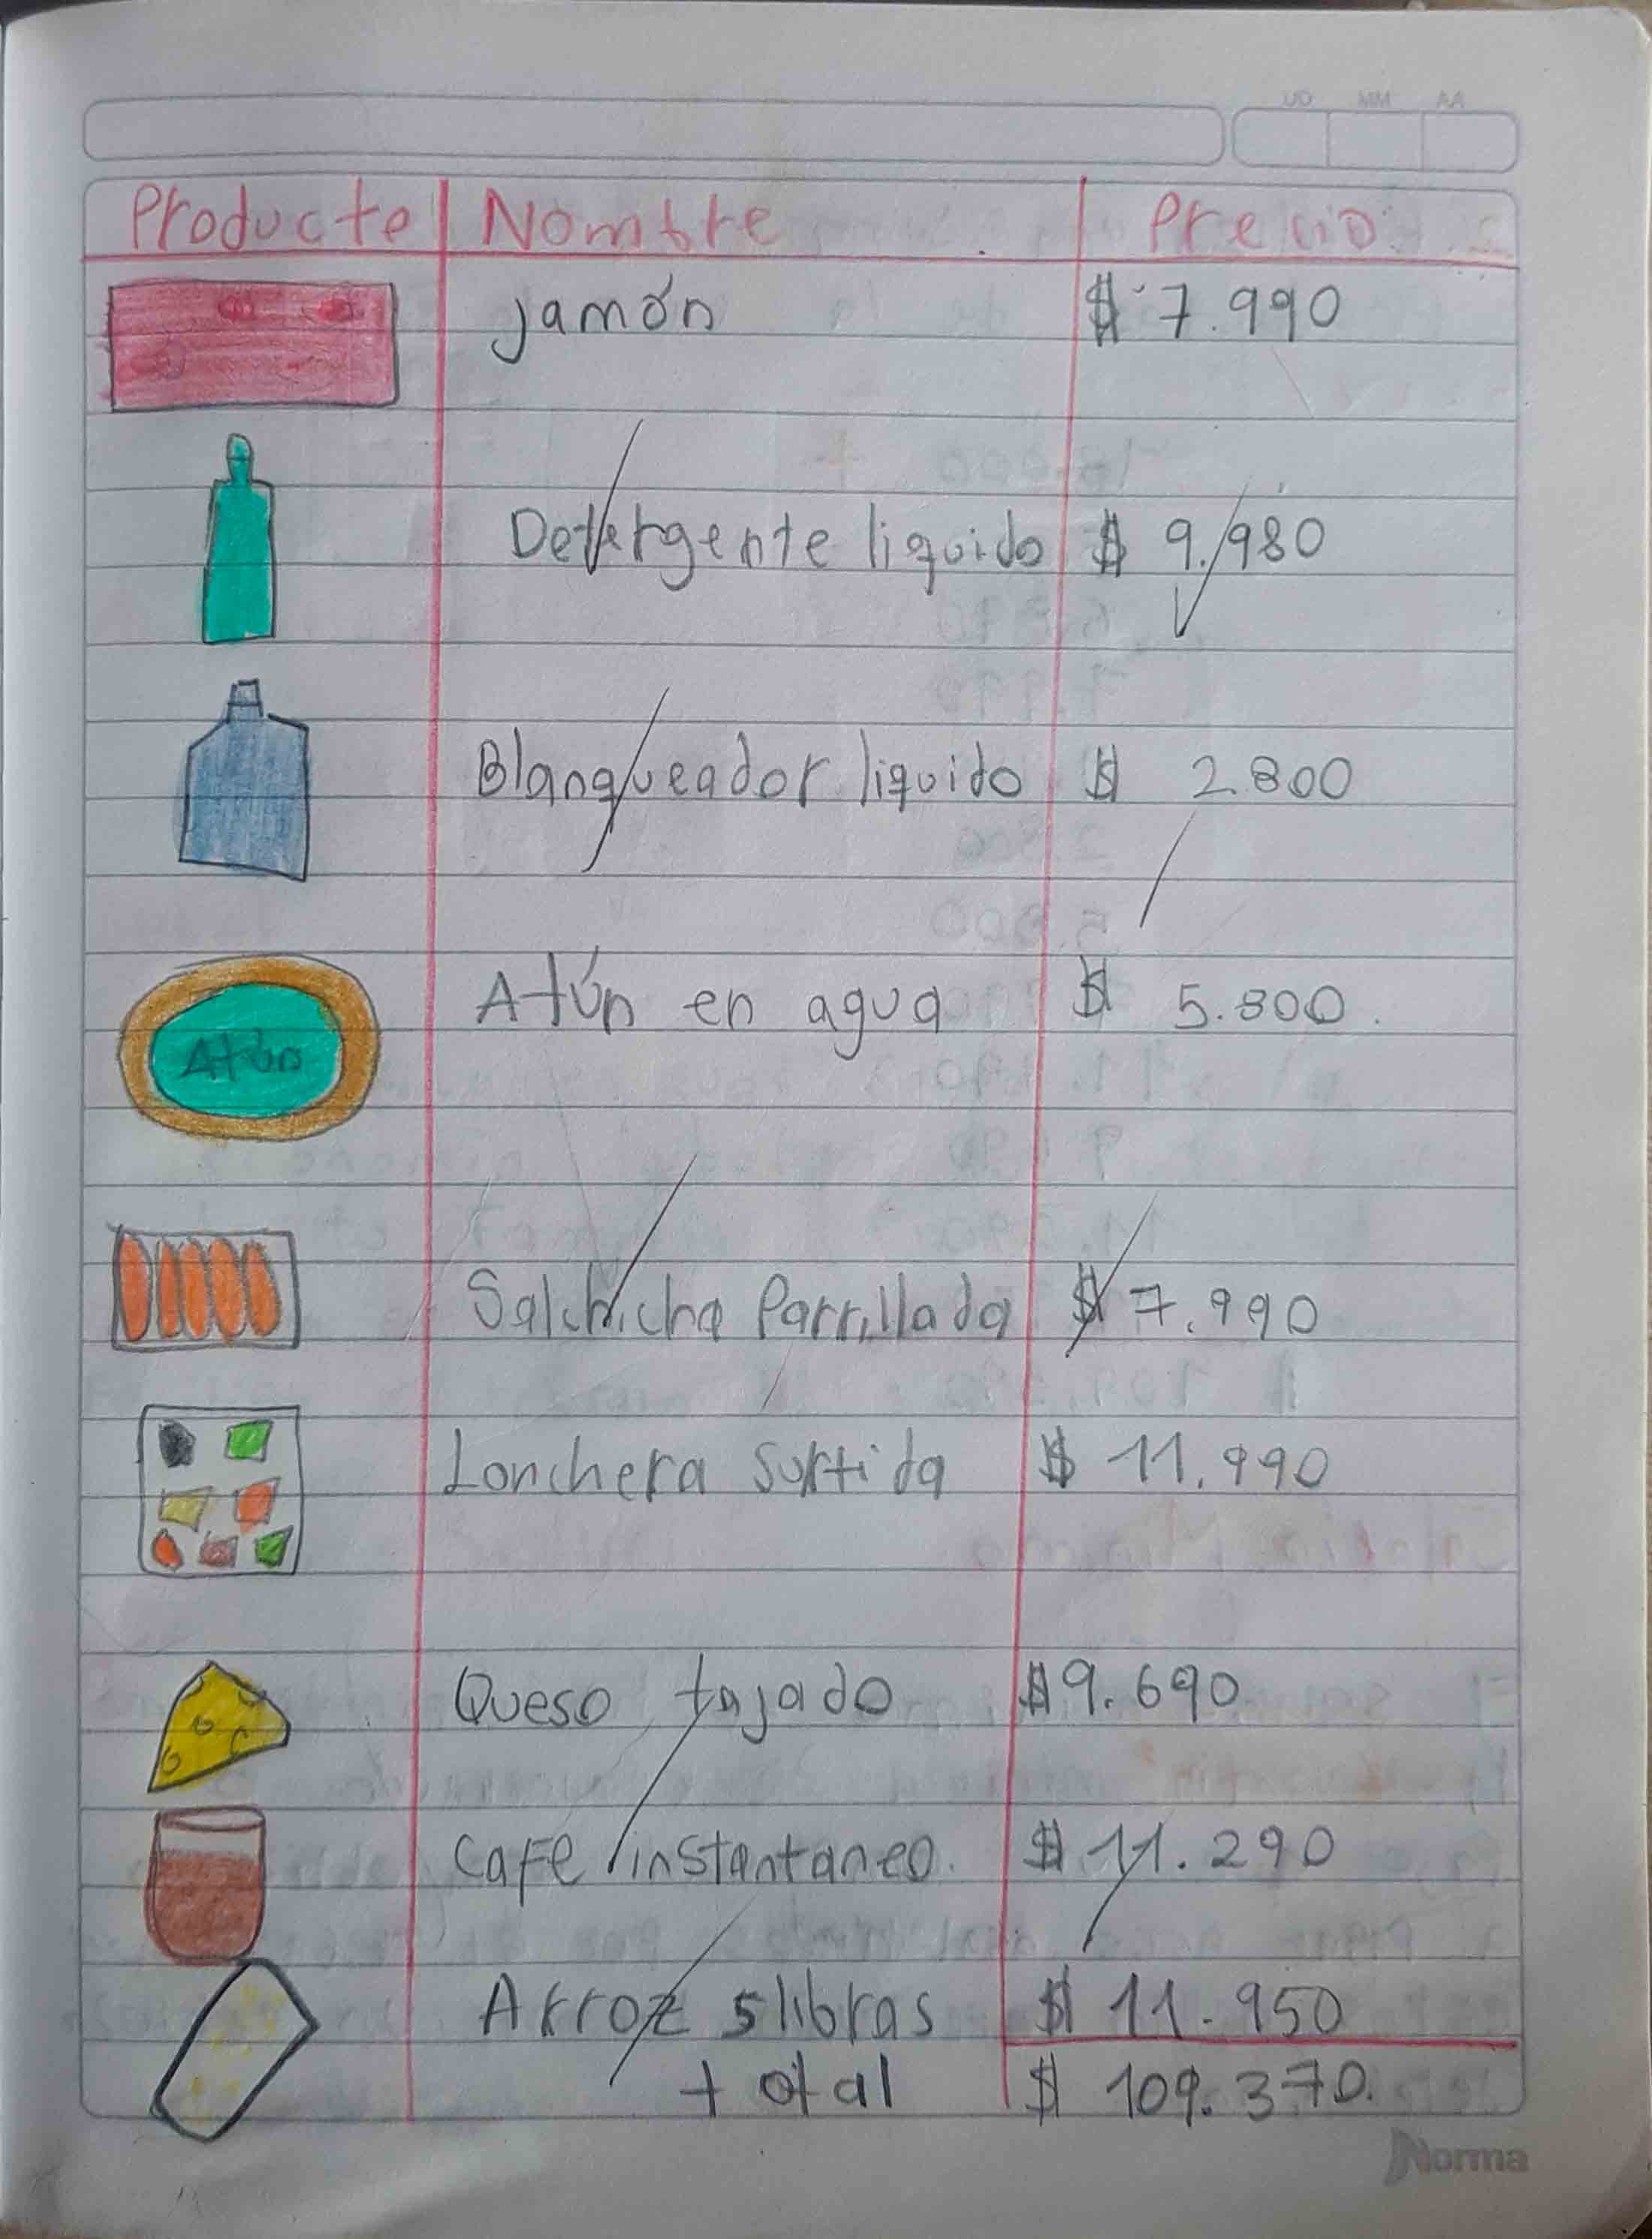 DD MM AA
Producto Nombre Precio
jamón $ 7.990
Detergente liquido $ 9.980
Blanqueador liquido $ 2.800
Atún en agua $ 5.800.
Atún
Salchicha Parrillada $ 7.990
Lonchera Surtida $ 11.990
Queso tajado $9.690
Cafe instantaneo. $ 11.290
Arroz 5 libras $ 11.950
total $ 109.370.
Norma